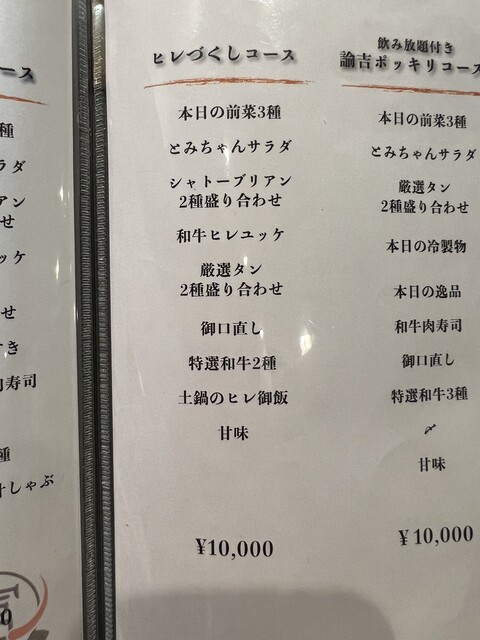 ース
種
ラダ
アン
せ
ッケ
せ
すき
肉寿司
種
汁しゃぶ
0
ヒレづくしコース
本日の前菜3種
とみちゃんサラダ
シャトーブリアン
2種盛り合わせ
和牛ヒレユッケ
厳選タン
2種盛り合わせ
御口直し
特選和牛2種
土鍋のヒレ御飯
甘味
¥10,000
飲み放題付き
諭吉ポッキリコース
本日の前菜3種
とみちゃんサラダ
厳選タン
2種盛り合わせ
本日の冷製物
本日の逸品
和牛肉寿司
御口直し
特選和牛3種
〆
甘味
¥10,000